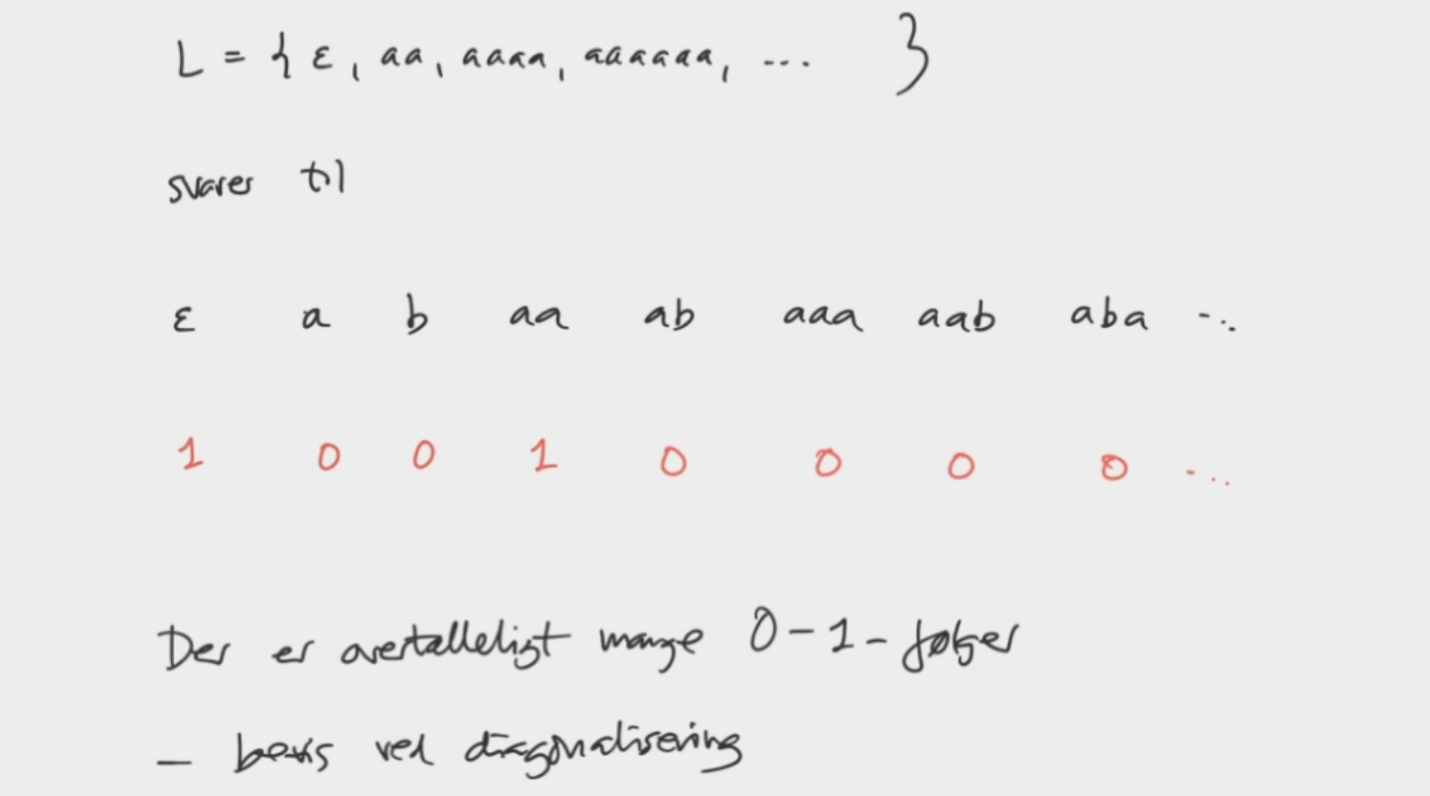 L = { ε, aa, aaaa, aaaaaa, ... }
svarer til
ε a b aa ab aaa aab aba ...
1 0 0 1 0 0 0 0 ...
Der er overtælleligt mange 0-1-følger
— bevis ved diagonalisering